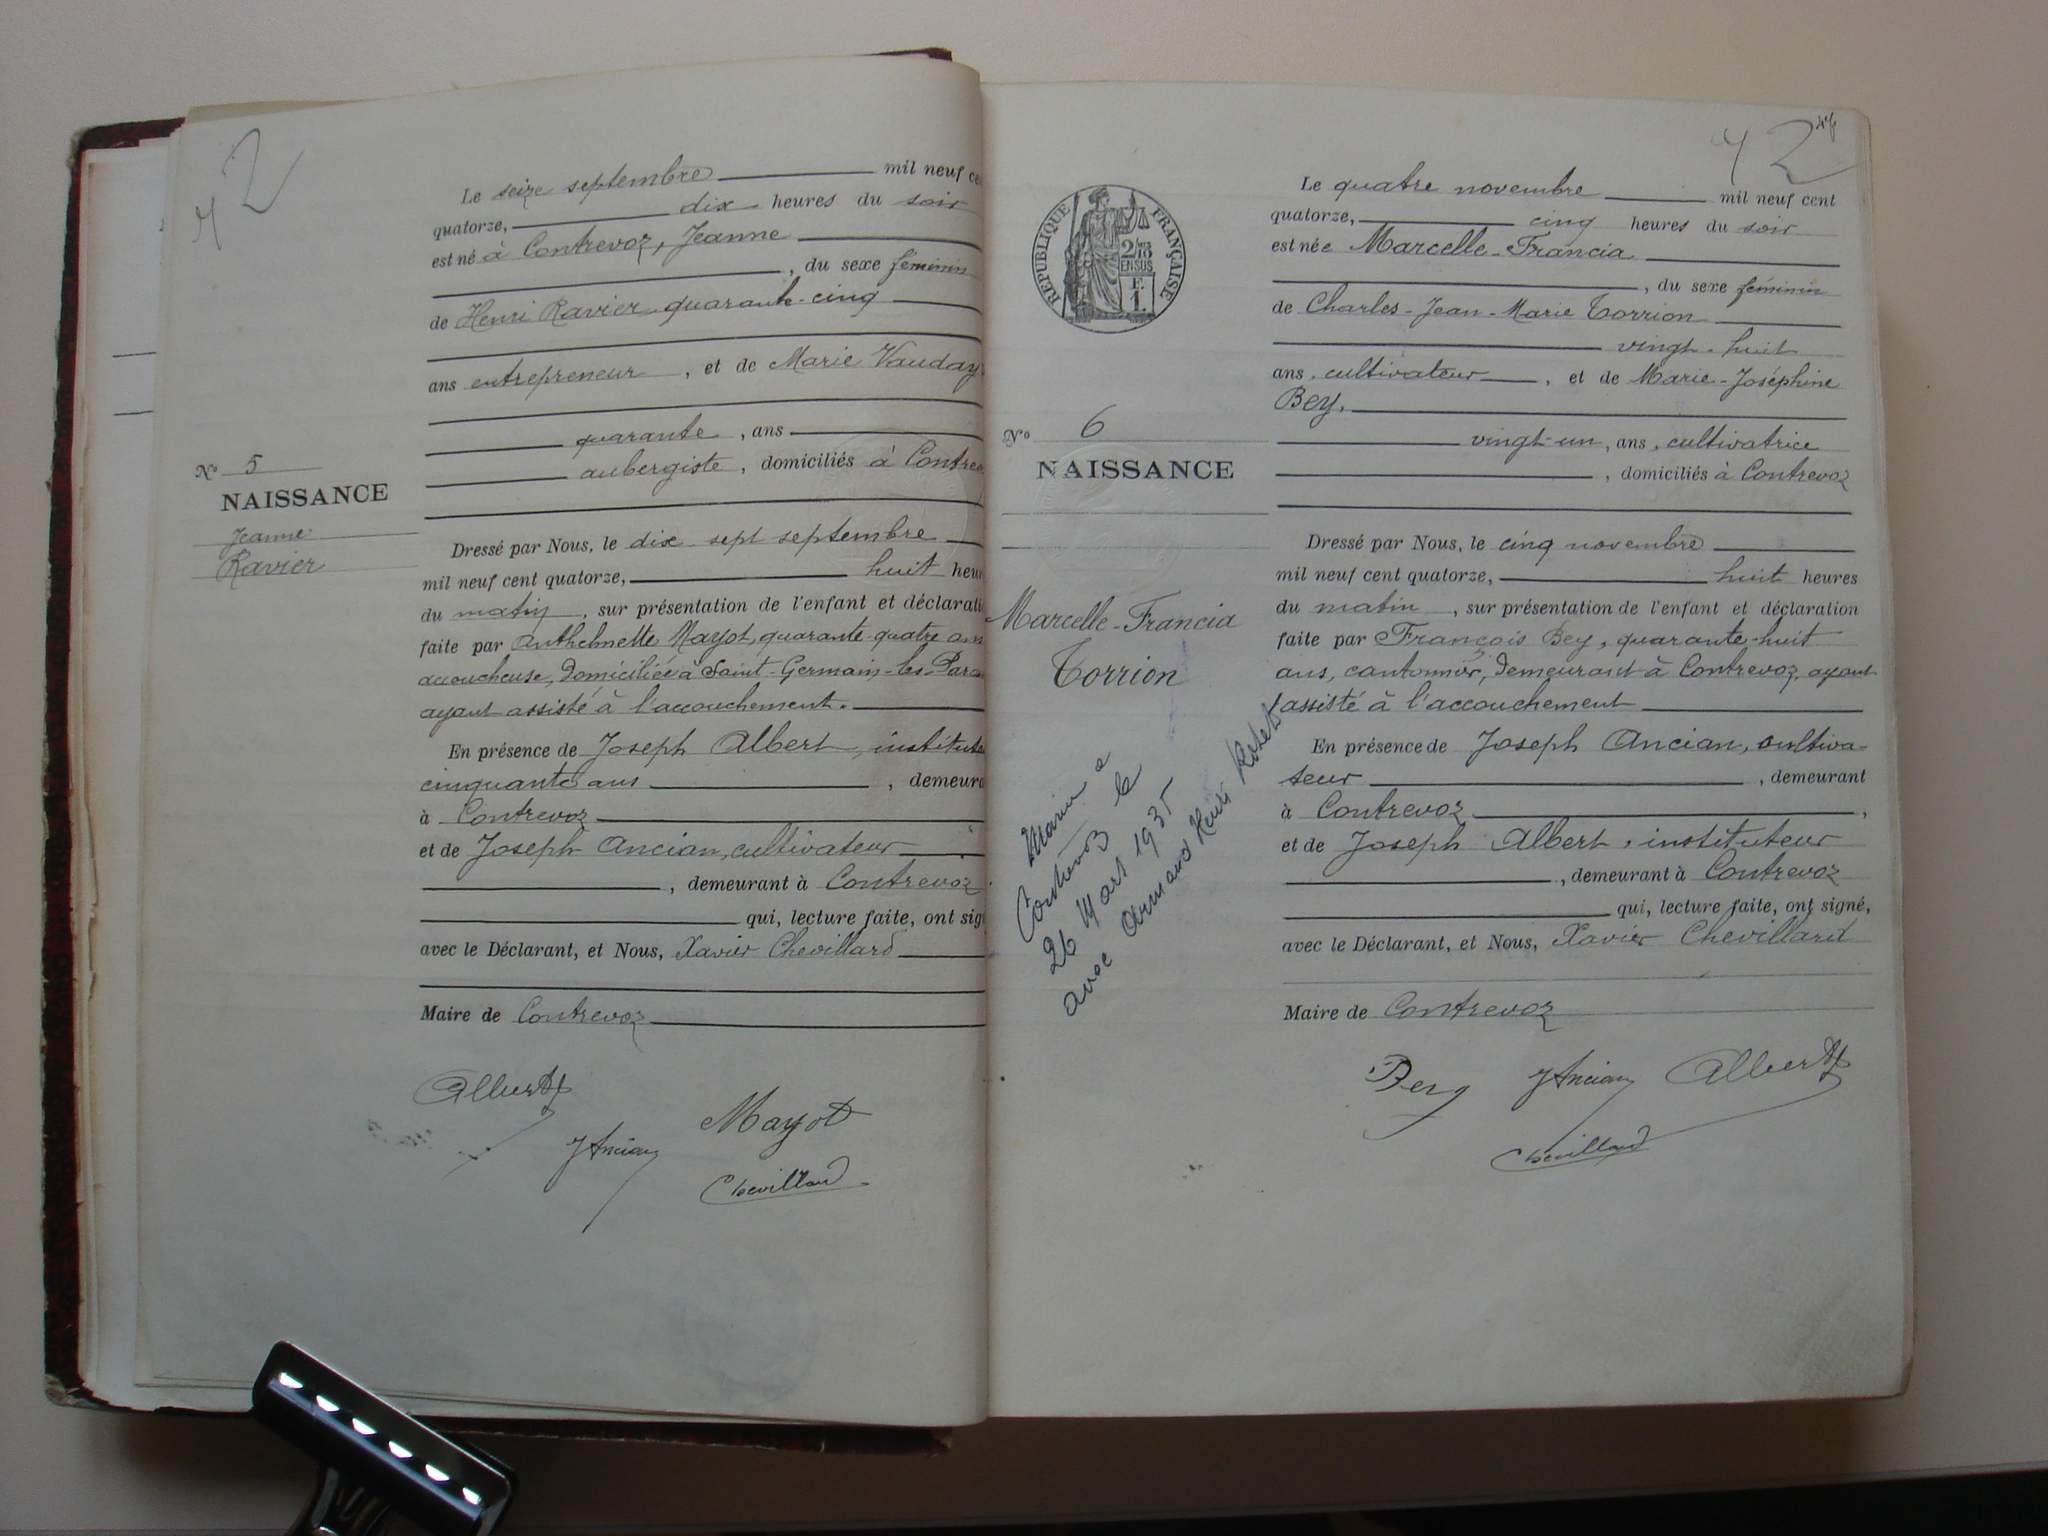 42
Le seize septembre mil neuf ce
quatorze, dix heures du soir
est né à Contrevoz, Jeanne
, du sexe féminin
de Henri Ravier quarante-cinq
ans entrepreneur , et de Marie Vauday
quarante , ans
aubergiste , domiciliés à Contrev
N° 5
NAISSANCE
Jeanne
Ravier
Dressé par Nous, le dix sept septembre
mil neuf cent quatorze, huit heur
du matin , sur présentation de l'enfant et déclarati
faite par Anthelmette Mayot, quarante-quatre ans
accoucheuse, domiciliée à Saint-Germain-les-Paro
ayant assisté à l'accouchement.
En présence de Joseph Albert, institute
cinquante ans , demeura
à Contrevoz
et de Joseph Ancian, cultivateur
, demeurant à Contrevoz
qui, lecture faite, ont sig
avec le Déclarant, et Nous, Xavier Chevillard
Maire de Contrevoz
Albert
JAncian
Mayot
Chevillard
42
RÉPUBLIQUE FRANÇAISE
2/10
EN SUS
F.
1.
Le quatre novembre mil neuf cent
quatorze, cinq heures du soir
est née Marcelle-Francia
, du sexe féminin
de Charles-Jean-Marie Torrion
vingt-huit
ans, cultivateur , et de Marie-Joséphine
Bey,
vingt-un, ans, cultivatrice
, domiciliés à Contrevoz
N° 6
NAISSANCE
Marcelle-Francia
Torrion
Marié à
Contrevoz le
26 Mars 1935
avec Armand Henri
Dressé par Nous, le cinq novembre
mil neuf cent quatorze, huit heures
du matin , sur présentation de l'enfant et déclaration
faite par François Bey, quarante-huit
ans, cantonnier, demeurant à Contrevoz, ayant
assisté à l'accouchement
En présence de Joseph Ancian, cultiva-
teur , demeurant
à Contrevoz ,
et de Joseph Albert, instituteur
, demeurant à Contrevoz
qui, lecture faite, ont signé,
avec le Déclarant, et Nous, Xavier Chevillard
Maire de Contrevoz
Bey JAncian Albert
Chevillard